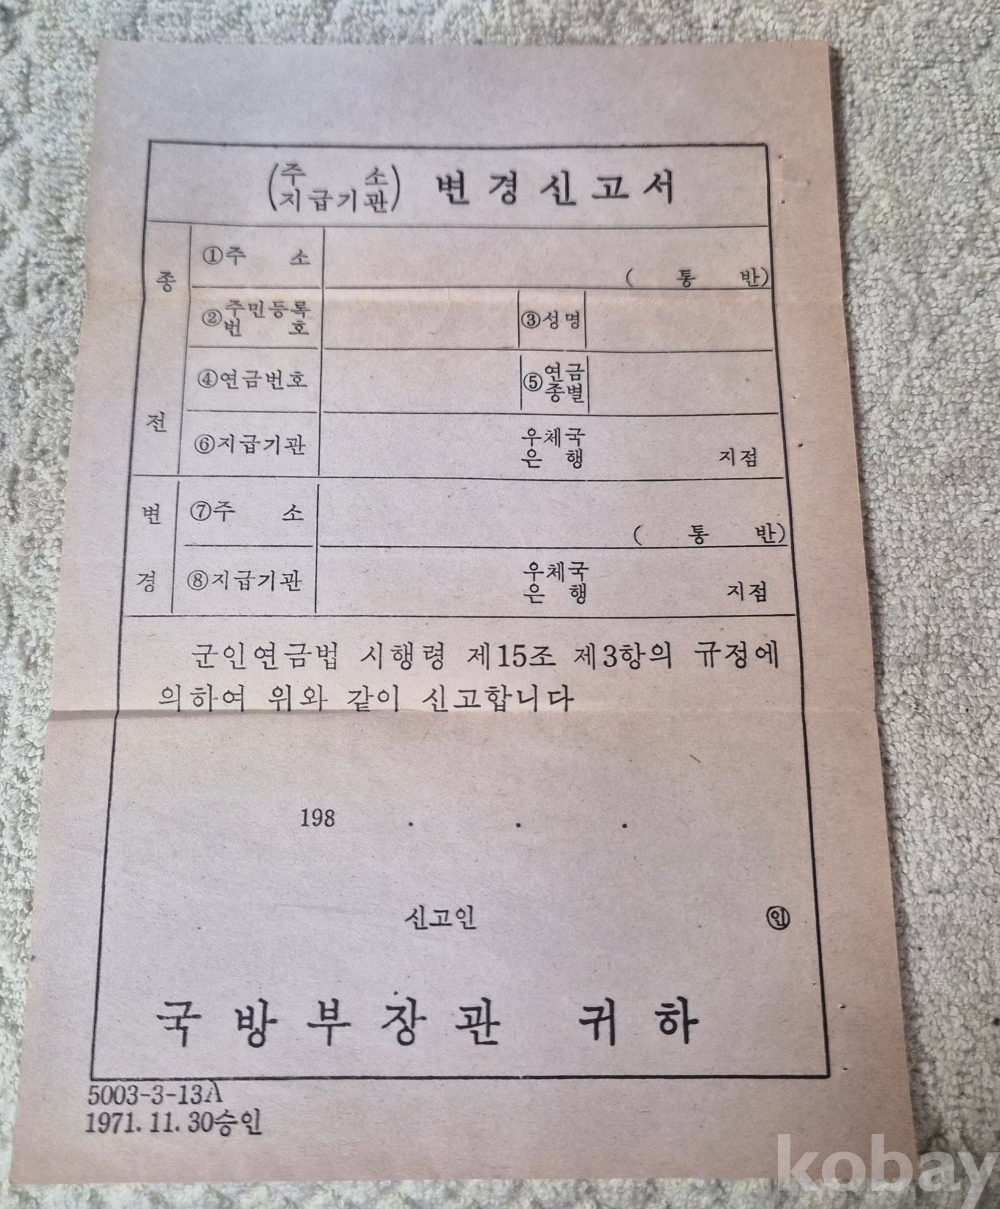 (주 소
지급기관) 변경신고서
종전
①주 소
( 통 반)
②주민등록
번 호
③성명
④연금번호
⑤연금
종별
⑥지급기관
우체국
은 행 지점
변경
⑦주 소
( 통 반)
⑧지급기관
우체국
은 행 지점
군인연금법 시행령 제15조 제3항의 규정에
의하여 위와 같이 신고합니다
198 . . .
신고인 ㊞
국방부장관 귀하
5003-3-13A
1971. 11. 30승인
kobay